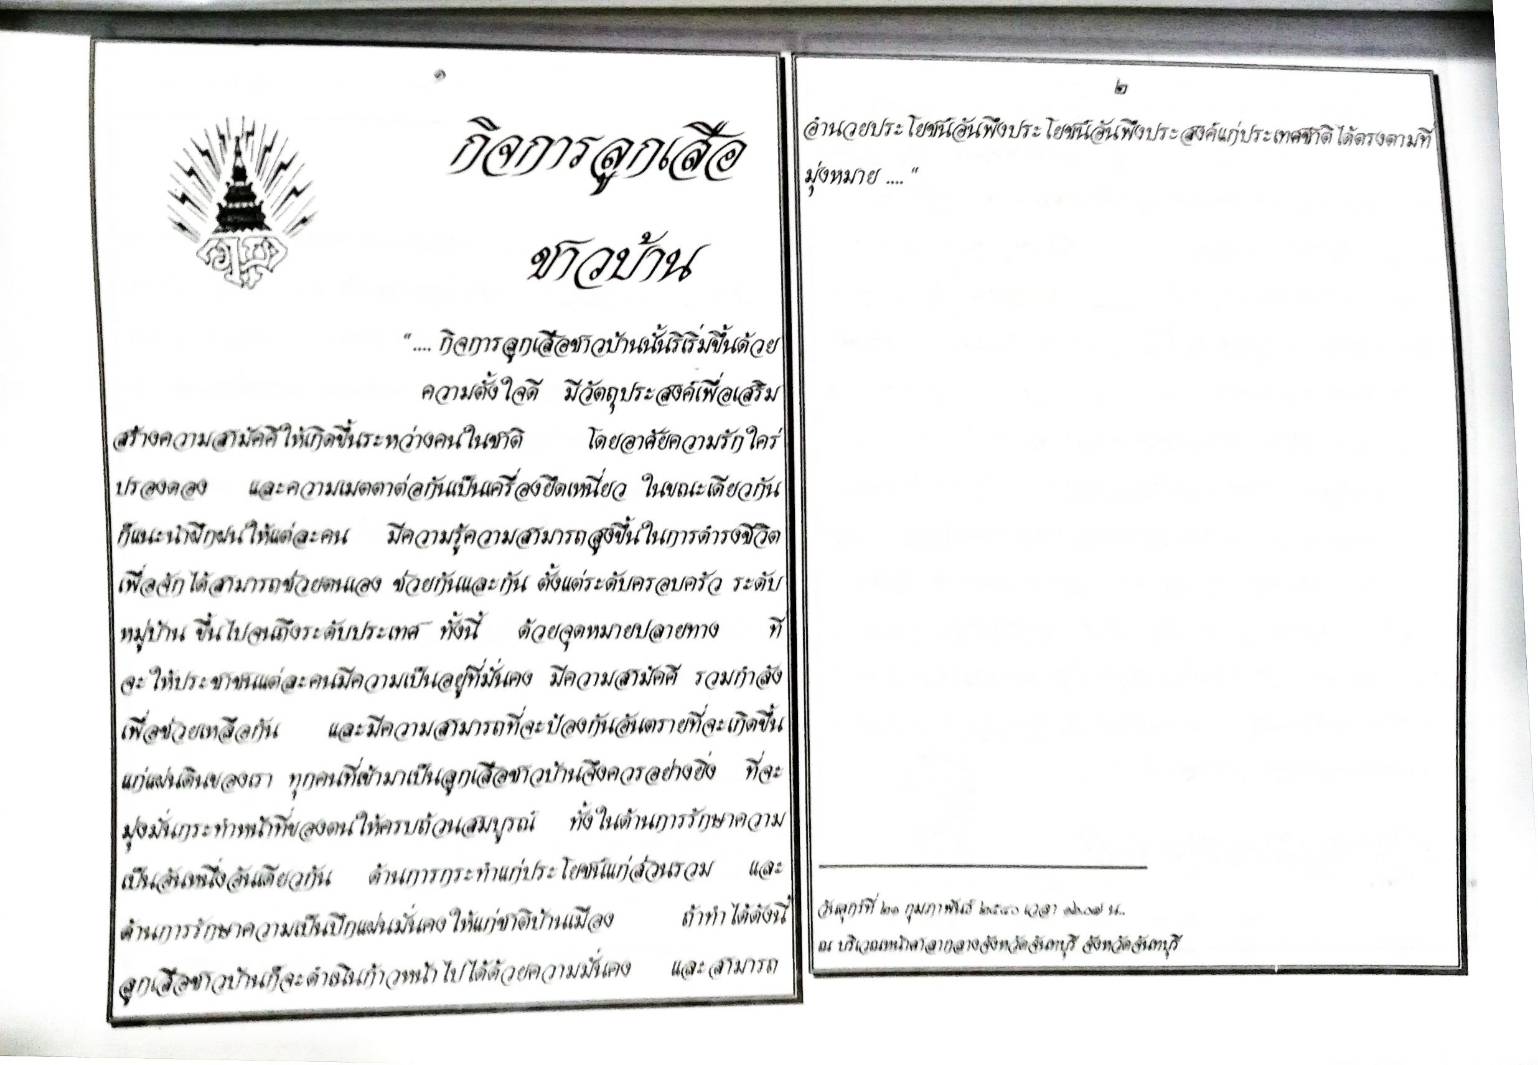 ๑
กิจการลูกเสือ
ชาวบ้าน
“.... กิจการลูกเสือชาวบ้านนั้นริเริ่มขึ้นด้วย
ความตั้งใจดี มีวัตถุประสงค์เพื่อเสริม
สร้างความสามัคคีให้เกิดขึ้นระหว่างคนในชาติ โดยอาศัยความรักใคร่
ปรองดอง และความเมตตาต่อกันเป็นเครื่องยึดเหนี่ยว ในขณะเดียวกัน
ก็แนะนำฝึกฝนให้แต่ละคน มีความรู้ความสามารถสูงขึ้นในการดำรงชีวิต
เพื่อจักได้สามารถช่วยตนเอง ช่วยกันและกัน ตั้งแต่ระดับครอบครัว ระดับ
หมู่บ้าน ขึ้นไปจนถึงระดับประเทศ ทั้งนี้ ด้วยจุดหมายปลายทาง ที่
จะให้ประชาชนแต่ละคนมีความเป็นอยู่ที่มั่นคง มีความสามัคคี รวมกำลัง
เพื่อช่วยเหลือกัน และมีความสามารถที่จะป้องกันอันตรายที่จะเกิดขึ้น
แก่แผ่นดินของเรา ทุกคนที่เข้ามาเป็นลูกเสือชาวบ้านจึงควรอย่างยิ่ง ที่จะ
มุ่งมั่นกระทำหน้าที่ของตนให้ครบถ้วนสมบูรณ์ ทั้งในด้านการรักษาความ
เป็นอันหนึ่งอันเดียวกัน ด้านการกระทำแก่ประโยชน์แก่ส่วนรวม และ
ด้านการรักษาความเป็นปึกแผ่นมั่นคงให้แก่ชาติบ้านเมือง ถ้าทำได้ดังนี้
ลูกเสือชาวบ้านก็จะดำเนินก้าวหน้าไปได้ด้วยความมั่นคง และสามารถ
๒
อำนวยประโยชน์อันพึงประโยชน์อันพึงประสงค์แก่ประเทศชาติได้ตรงตามที่
มุ่งหมาย .... “
วันศุกร์ที่ ๒๑ กุมภาพันธ์ ๒๕๔๐ เวลา น..
ณ บริเวณหน้าศาลากลางจังหวัดจันทบุรี จังหวัดจันทบุรี